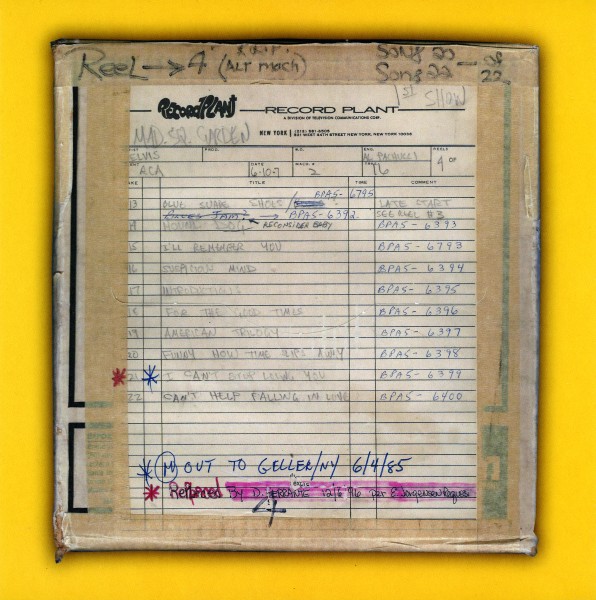 REEL → 4 (ALT mach) SONG 20 - OF
SONG 22 22
1ST SHOW
RECORD PLANT RECORD PLANT
A DIVISION OF TELEVISION COMMUNICATIONS CORP.
MAD. SQ. GARDEN
NEW YORK (212) 581-6505
321 WEST 44TH STREET NEW YORK, NEW YORK 10036
ELVIS PROD. ENG. AL PACHUCKI REELS 4 OF
RCA DATE 6-10-7 MACH. # 2 16
TITLE TIME COMMENT
BPA5-6795
13 BLUE SUADE SHOES LATE START
BPA5-6392 SEE REEL #3
14 HOUND DOG RECONSIDER BABY BPA5-6393
15 I'LL REMEMBER YOU BPA5-6793
16 SUSPICION MIND BPA5-6394
17 INTRODUCTIONS BPA5-6395
18 FOR THE GOOD TIMES BPA5-6396
19 AMERICAN TRILOGY BPA5-6397
20 FUNNY HOW TIME SLIPS AWAY BPA5-6398
* 21 * I CAN'T STOP LOVING YOU BPA5-6399
22 CAN'T HELP FALLING IN LOVE BPA5-6400
* M OUT TO GELLER/NY 6/4/85
* Returned By D. 12/6/96 per E. Jorgensen
4